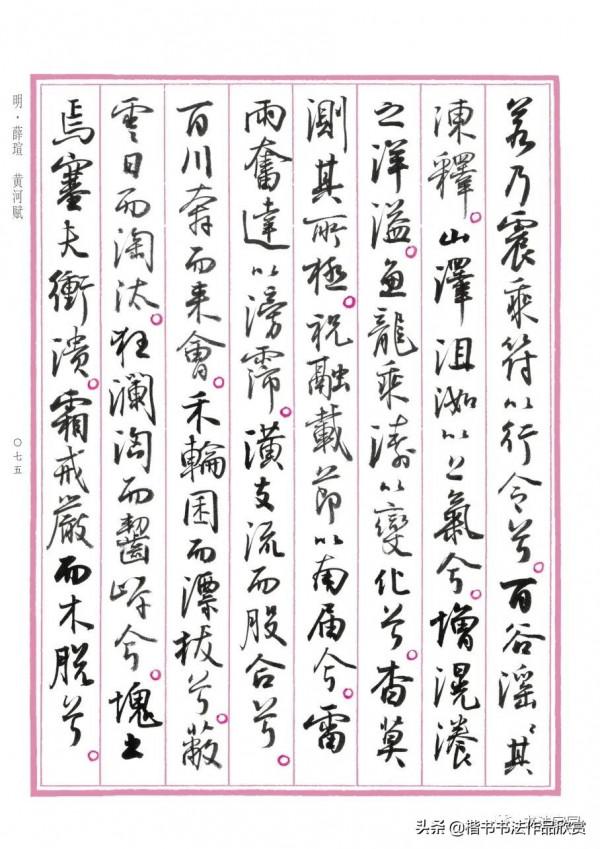 若乃震乘符以行令兮。百谷滛〻其
凍釋。山澤沮洳以上氣兮。增滉瀁
之洋溢。魚龍乘濤以變化兮。杳莫
測其所極。祝融載節以南屆兮。雷
雨奮達以滂霈。潢支流而股合兮。
百川奔而来會。禾輪囷而漂拔兮。蔽
雲日而淘汰。狂瀾淘而齧岸兮。塊土
焉塞夫衝潰。霜戒嚴而木脱兮。
明·薛瑄 黄河赋
〇七五
头条 @楷书书法作品欣赏